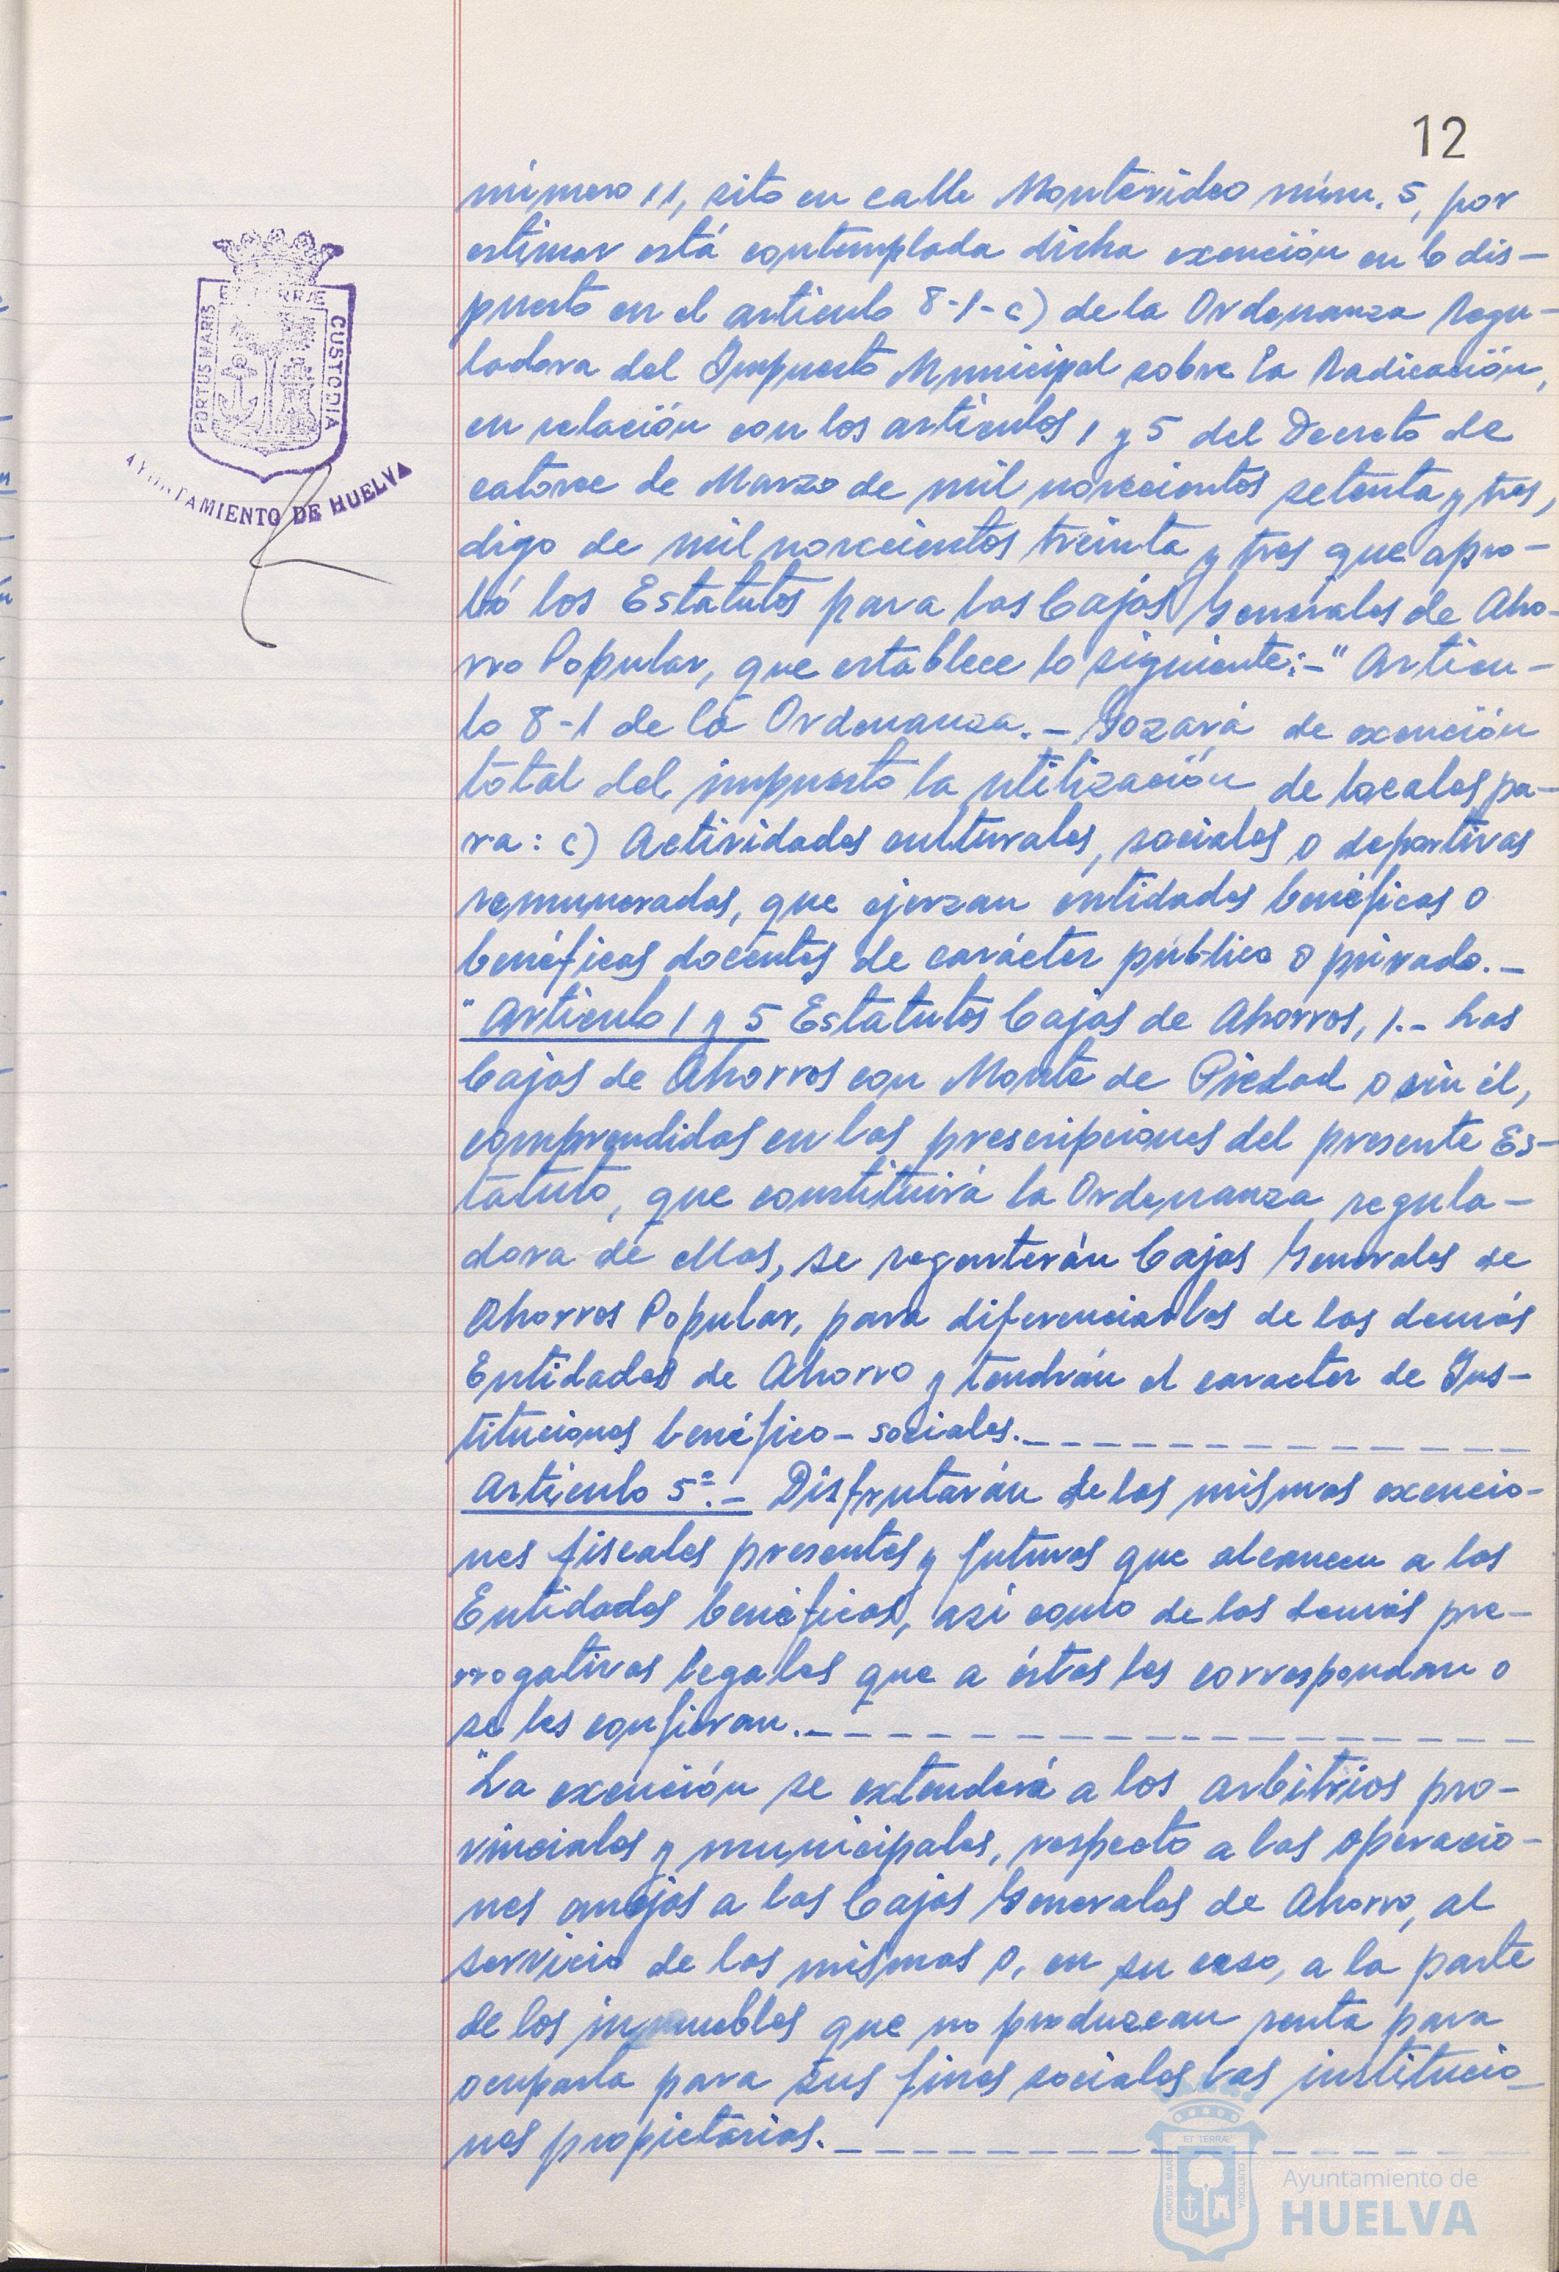 12
número 11, sito en calle Montevideo núm. 5, por
estimar está contemplada dicha exención en lo dis-
puesto en el articulo 8-1-c) de la Ordenanza Regu-
ladora del Impuesto Municipal sobre la Radicación,
en relación con los artículos 1 y 5 del Decreto de
catorce de Marzo de mil novecientos setenta y tres,
digo de mil novecientos treinta y tres que apro-
bó los Estatutos para las Cajas Generales de Aho-
rro Popular, que establece lo siguiente:-" Articu-
lo 8-1 de la Ordenanza.- Gozará de exención
total del impuesto la utilización de locales pa-
ra: c) Actividades culturales, sociales o deportivas
remuneradas, que ejerzan entidades benéficas o
benéficas docentes de carácter público o privado.-
"Artículo 1 y 5 Estatutos Cajas de Ahorros, 1.- Las
Cajas de Ahorros con Monte de Piedad o sin él,
comprendidas en las prescripciones del presente Es-
tatuto, que constituirá la Ordenanza regula-
dora de ellas, se Cajas Generales de
Ahorros Popular, para diferenciarlas de las demás
Entidades de Ahorro y tendrán el caracter de Ins-
tituciones benéfico-sociales.-
Artículo 5º.- Disfrutarán de las mismas exencio-
nes fiscales presentes y futuras que alcancen a las
Entidades benéficas, así como de las demás pre-
rrogativas legales que a éstas les correspondan o
se les confieran.-
"La exención se extenderá a los arbitrios pro-
vinciales y municipales, respecto a las operacio-
nes anejas a las Cajas Generales de Ahorro, al
servicio de las mismas o, en su caso, a la parte
de los inmuebles que no produzcan renta para
ocuparla para sus fines sociales las institucio-
nes propietarias.-
PORTUS MARIS
ET TERRÆ
CUSTODIA
AYUNTAMIENTO DE HUELVA
PORTUS MARIS
ET TERRÆ
CUSTODIA
Ayuntamiento de
HUELVA